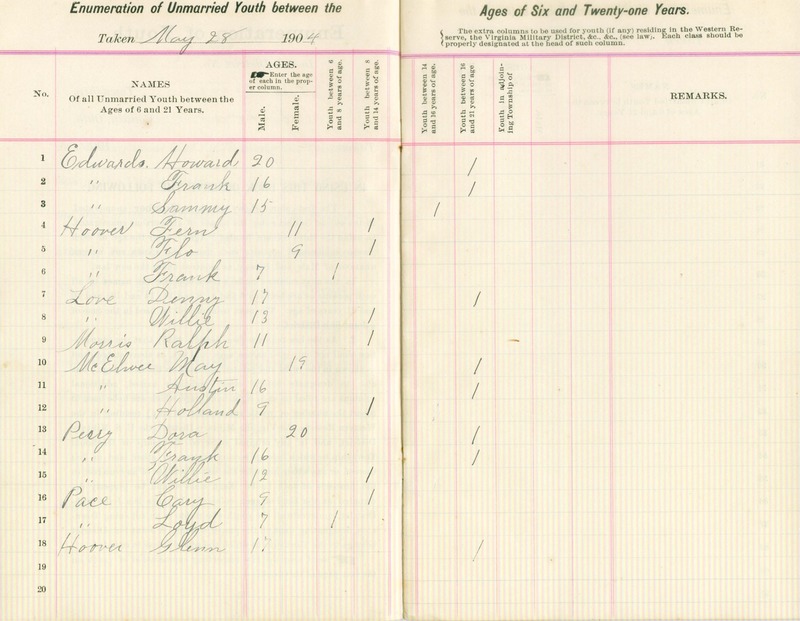 Enumeration of Unmarried Youth between the
Taken May 28 1904
No.
NAMES
Of all Unmarried Youth between the
Ages of 6 and 21 Years.
AGES.
Enter the age
of each in the prop-
er column.
Male.
Female.
Youth between 6
and 8 years of age.
Youth between 8
and 14 years of age.
Ages of Six and Twenty-one Years.
The extra columns to be used for youth (if any) residing in the Western Re-
serve, the Virginia Military District, &c., &c., (see law). Each class should be
properly designated at the head of such column.
Youth between 14
and 16 years of age.
Youth between 16
and 21 years of age.
Youth in adjoin-
ing Township of
REMARKS.
1 Edwards. Howard 20 1
2 " Frank 16 1
3 " Sammy 15 1
4 Hoover Fern 11 1
5 " Flo 9 1
6 " Frank 7 1
7 Love Denny 17 1
8 " Willie 13 1
9 Morris Ralph 11 1
10 McElwee May 19 1
11 " Austin 16 1
12 " Holland 9 1
13 Perry Dora 20 1
14 " Frank 16 1
15 " Willie 12 1
16 Pace Cary 9 1
17 " Loyd 7 1
18 Hoover Glenn 17 1
19
20